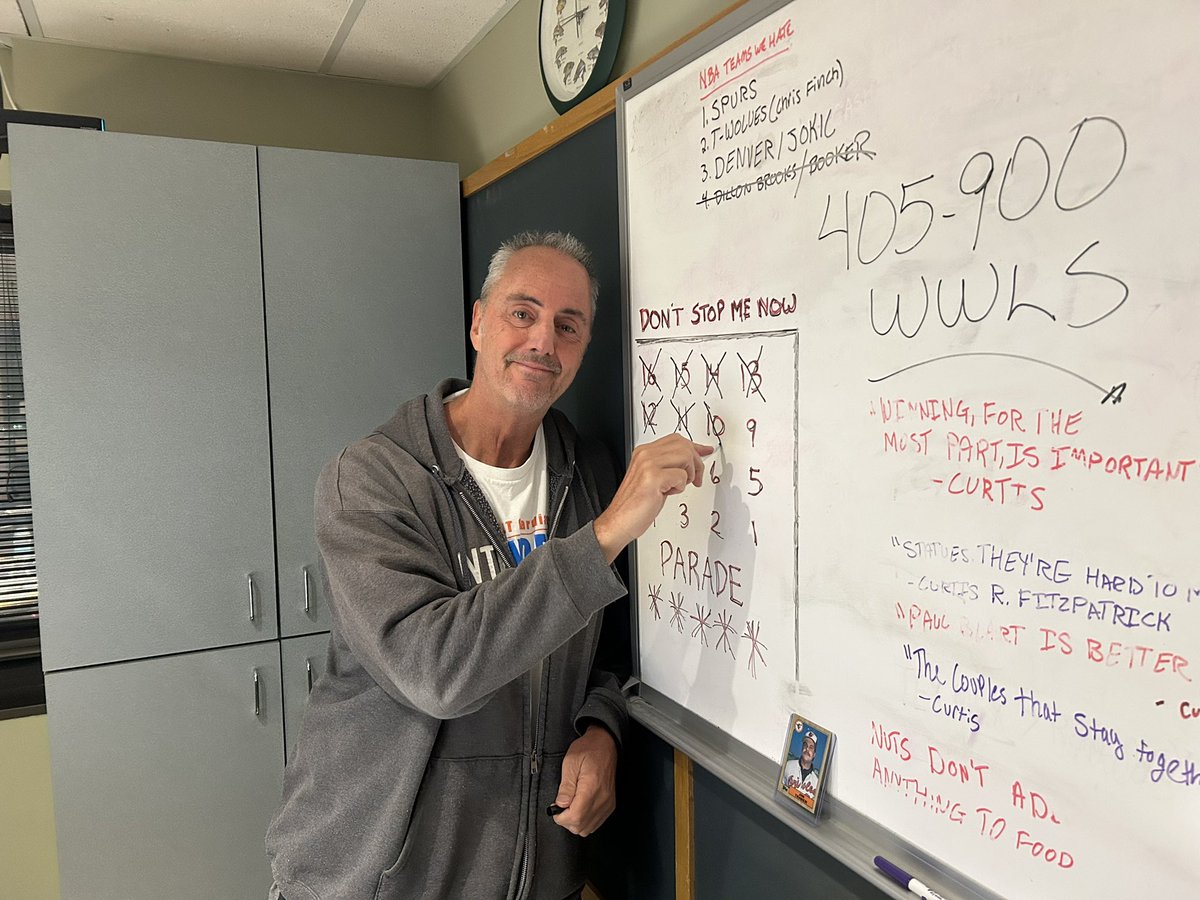 NBA TEAMS WE HATE
1. SPURS
2. T-WOLVES (Chris Finch)
3. DENVER/JOKIC
4. DILLON BROOKS/BOOKER
405-900
WWLS
DON'T STOP ME NOW
16 15 14 13
12 11 10 9
6 5
3 2 1
PARADE
"WINNING, FOR THE
MOST PART, IS IMPORTANT
-CURTIS
"STATUES. THEY'RE HARD TO
-CURTIS R. FITZPATRICK
"PAUL BLART IS BETTER
"The Couples that stay together
-Curtis
NUTS DON'T AD
ANYTHING TO FOOD
Orioles